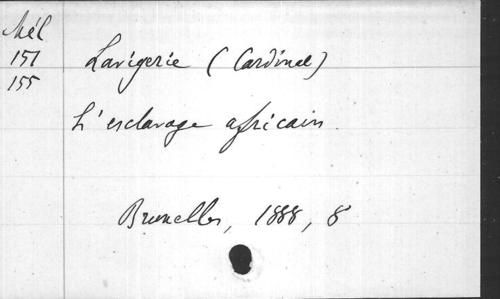 Mél
151
155
Lavigerie (Cardinal)
L'esclavage africain.
Bruxelles, 1888, 8